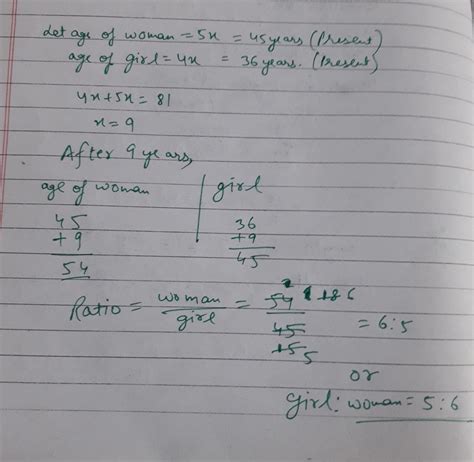 Let age of woman = 5x = 45 years (Present)
age of girl = 4x = 36 years. (Present)
4x+5x = 81
x = 9
After 9 years,
age of woman | girl
45 36
+9 +9
54 45
Ratio = woman/girl = 54/45 = 6:5
or
girl: woman = 5:6